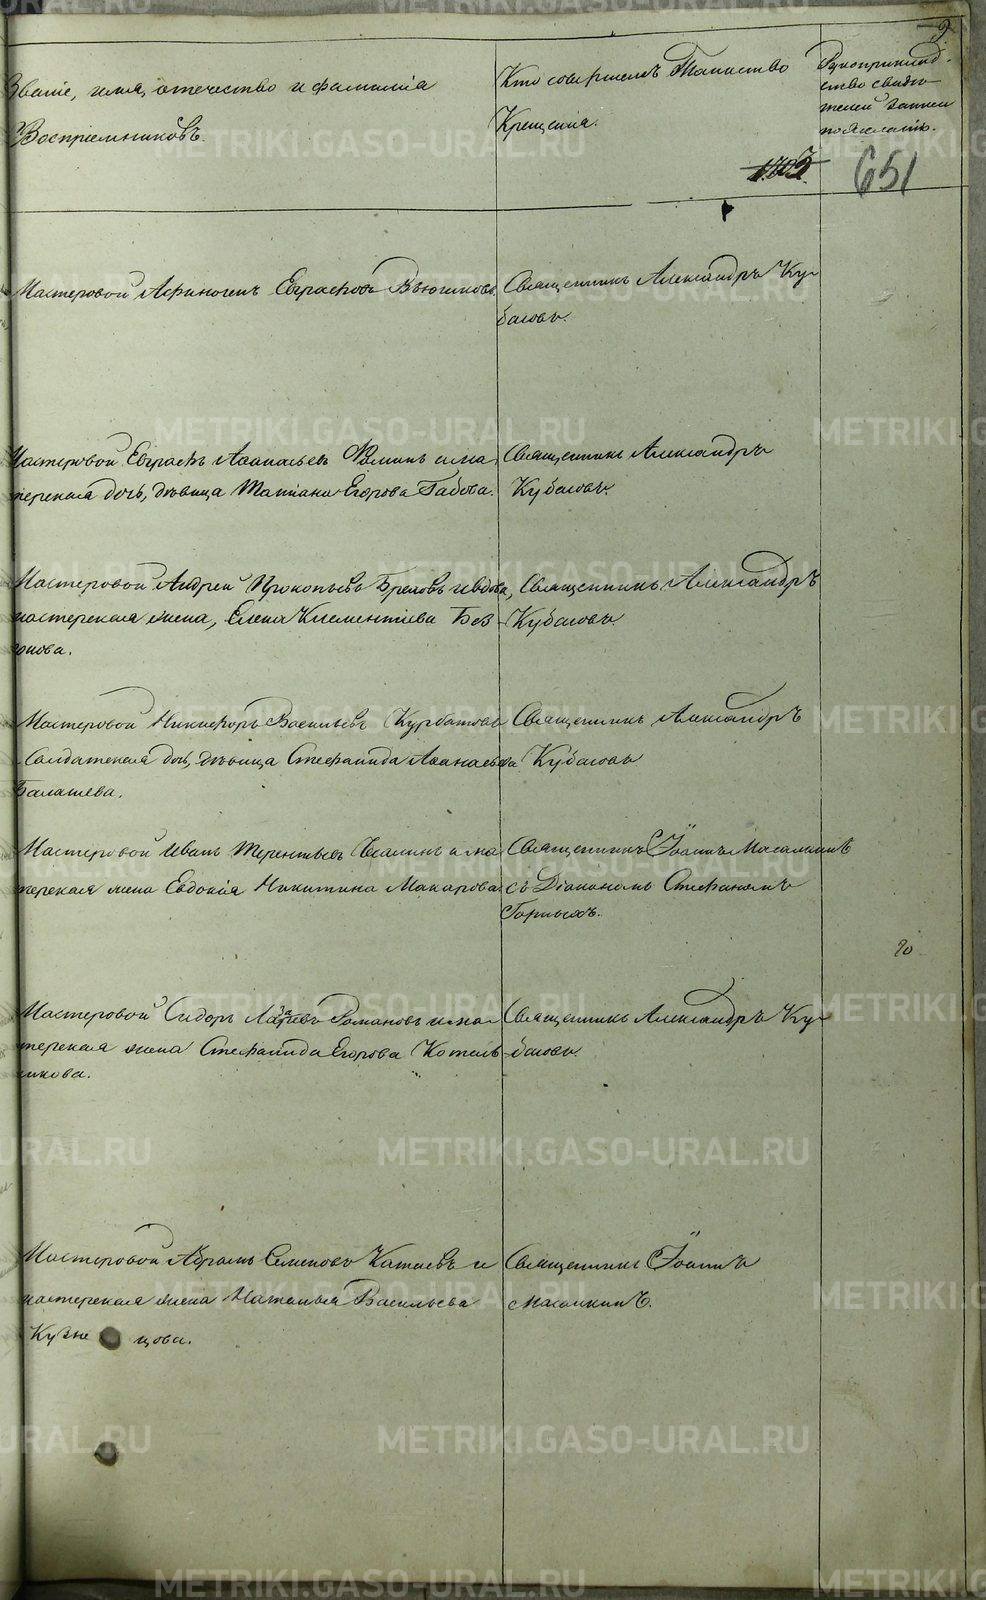 9
Званіе, имя, отечество и фамилія
Воспріемниковъ.
Кто совершалъ Таинство
Крещенія.
Рукоприклад-
ство свидѣ-
телей записи
по желанію.
1703
651
Мастеровой Афиногенъ Евграфовъ Вьюшковъ.
Священникъ Александръ Ку-
басовъ.
Мастеровой Евграфъ Аѳанасьевъ Фоминъ и ма
терская дочь, дѣвица Татіана Егорова Бабова.
Священникъ Александръ
Кубасовъ.
Мастеровой Андрей Прокопьевъ и вдова,
мастерская жена, Елена Клементіева Без
онова.
Священникъ Александръ
Кубасовъ.
Мастеровой Никифоръ Васильевъ Курбатовъ
Солдатская дочь, дѣвица Стефанида Аѳанасьева
Балашева.
Священникъ Александръ
Кубасовъ
Мастеровой Иванъ Терентьевъ и ма
терская жена Евдокія Никитина Макарова.
Священникъ Іоаннъ Масалкинъ
съ Діакономъ Стефаномъ
Горныхъ.
Мастеровой Сидоръ Лазаревъ Романовъ и ма-
терская жена Стефанида Егорова Котель-
никова.
Священникъ Александръ Ку-
басовъ.
Мастеровой Абрамъ Семеновъ Катаевъ и
мастерская жена Наталья Васильева
Кузнецова.
Священникъ Іоаннъ
Масалкинъ.
METRIKI.GASO-URAL.RU